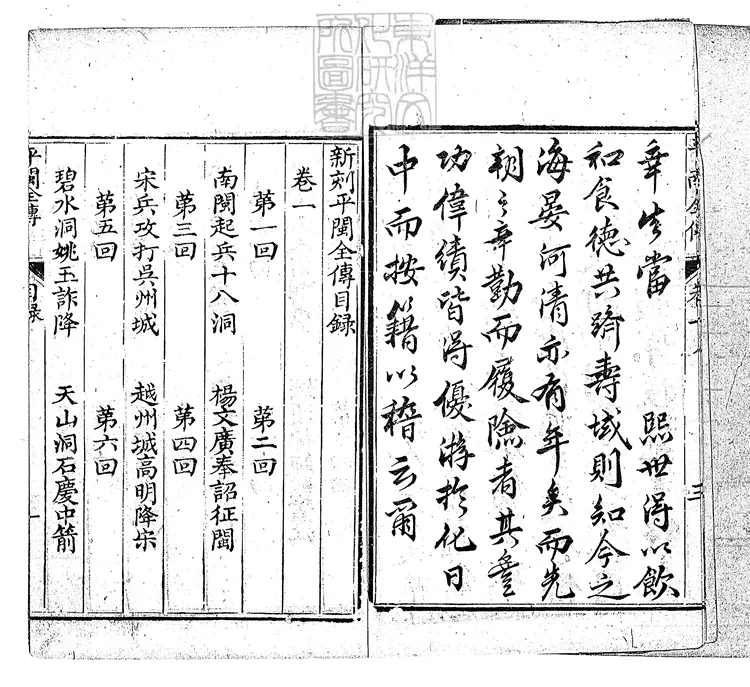 幸生當
熙世得以飲
和食德共躋壽域則知今之
海晏河清亦有年矣而先
朝之辛勤而履險者其豐
功偉績皆得優游於化日
中而按籍以稽云爾
三
新刻平閩全傳目錄
卷一
第一回
第二回
南閩起兵十八洞
楊文廣奉詔征閩
第三回
第四回
宋兵攻打吳州城
越州城高明降宋
第五回
第六回
碧水洞姚玉詐降
天山洞石慶中箭
平閩全傳
目錄
一
東洋文
化研究
所圖書